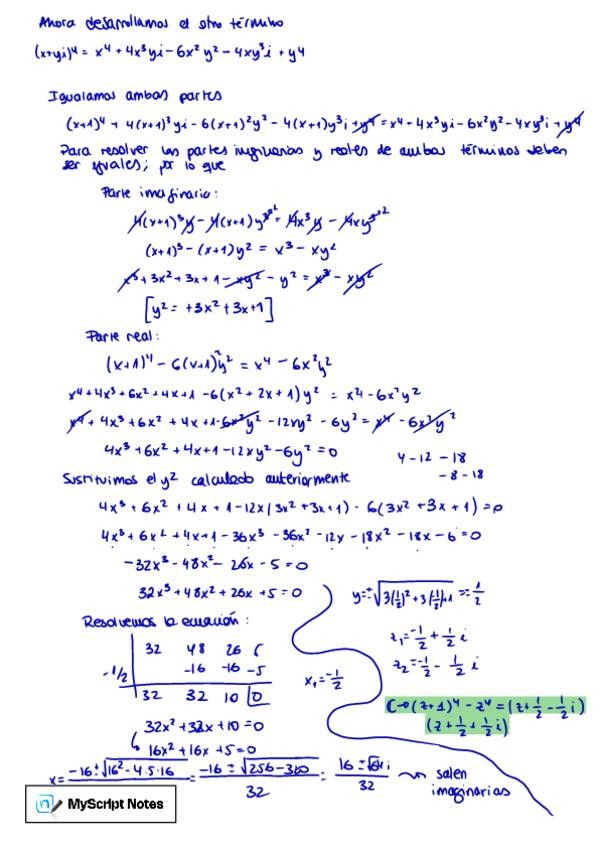 Ahora desarrollamos el otro término
(x+yi)⁴ = x⁴ + 4x³yi - 6x²y² - 4xy³i + y⁴
Igualamos ambas partes
(x+1)⁴ + 4(x+1)³yi - 6(x+1)²y² - 4(x+1)y³i + y⁴ = x⁴ + 4x³yi - 6x²y² - 4xy³i + y⁴
Para resolver las partes imaginarias y reales de ambos términos deben
ser iguales; por lo que
Parte imaginaria:
4(x+1)³y - 4(x+1)y³² = 4x³y - 4xy³²
(x+1)³ - (x+1)y² = x³ - xy²
x³ + 3x² + 3x + 1 - xy² - y² = x³ - xy²
[y² = +3x² + 3x + 1]
Parte real:
(x+1)⁴ - 6(x+1)²y² = x⁴ - 6x²y²
x⁴ + 4x³ + 6x² + 4x + 1 - 6(x² + 2x + 1)y² = x⁴ - 6x²y²
x⁴ + 4x³ + 6x² + 4x + 1 - 6x²y² - 12xy² - 6y² = x⁴ - 6x²y²
4x³ + 6x² + 4x + 1 - 12xy² - 6y² = 0
4 - 12 - 18
- 8 - 18
Sustituimos el y² calculado anteriormente
4x³ + 6x² + 4x + 1 - 12x(3x² + 3x + 1) - 6(3x² + 3x + 1) = 0
4x³ + 6x² + 4x + 1 - 36x³ - 36x² - 12x - 18x² - 18x - 6 = 0
-32x³ - 48x² - 26x - 5 = 0
32x³ + 48x² + 26x + 5 = 0
y = ± √3(½)² + 3(-½) + 1 = ± 1/2
Resolvemos la ecuación:
32 48 26 5
-1/2 -16 -16 -5
32 32 10 0
x₁ = -1/2
z₁ = -1/2 + 1/2 i
z₂ = -1/2 - 1/2 i
C → (z+1)⁴ - z⁴ = (z + 1/2 - 1/2 i)
(z + 1/2 + 1/2 i)
32x² + 32x + 10 = 0
16x² + 16x + 5 = 0
x = -16 ± √16² - 4·5·16 / = -16 ± √256 - 320 / 32 = 16 ± √64 i / 32 → salen
imaginarias
MyScript Notes